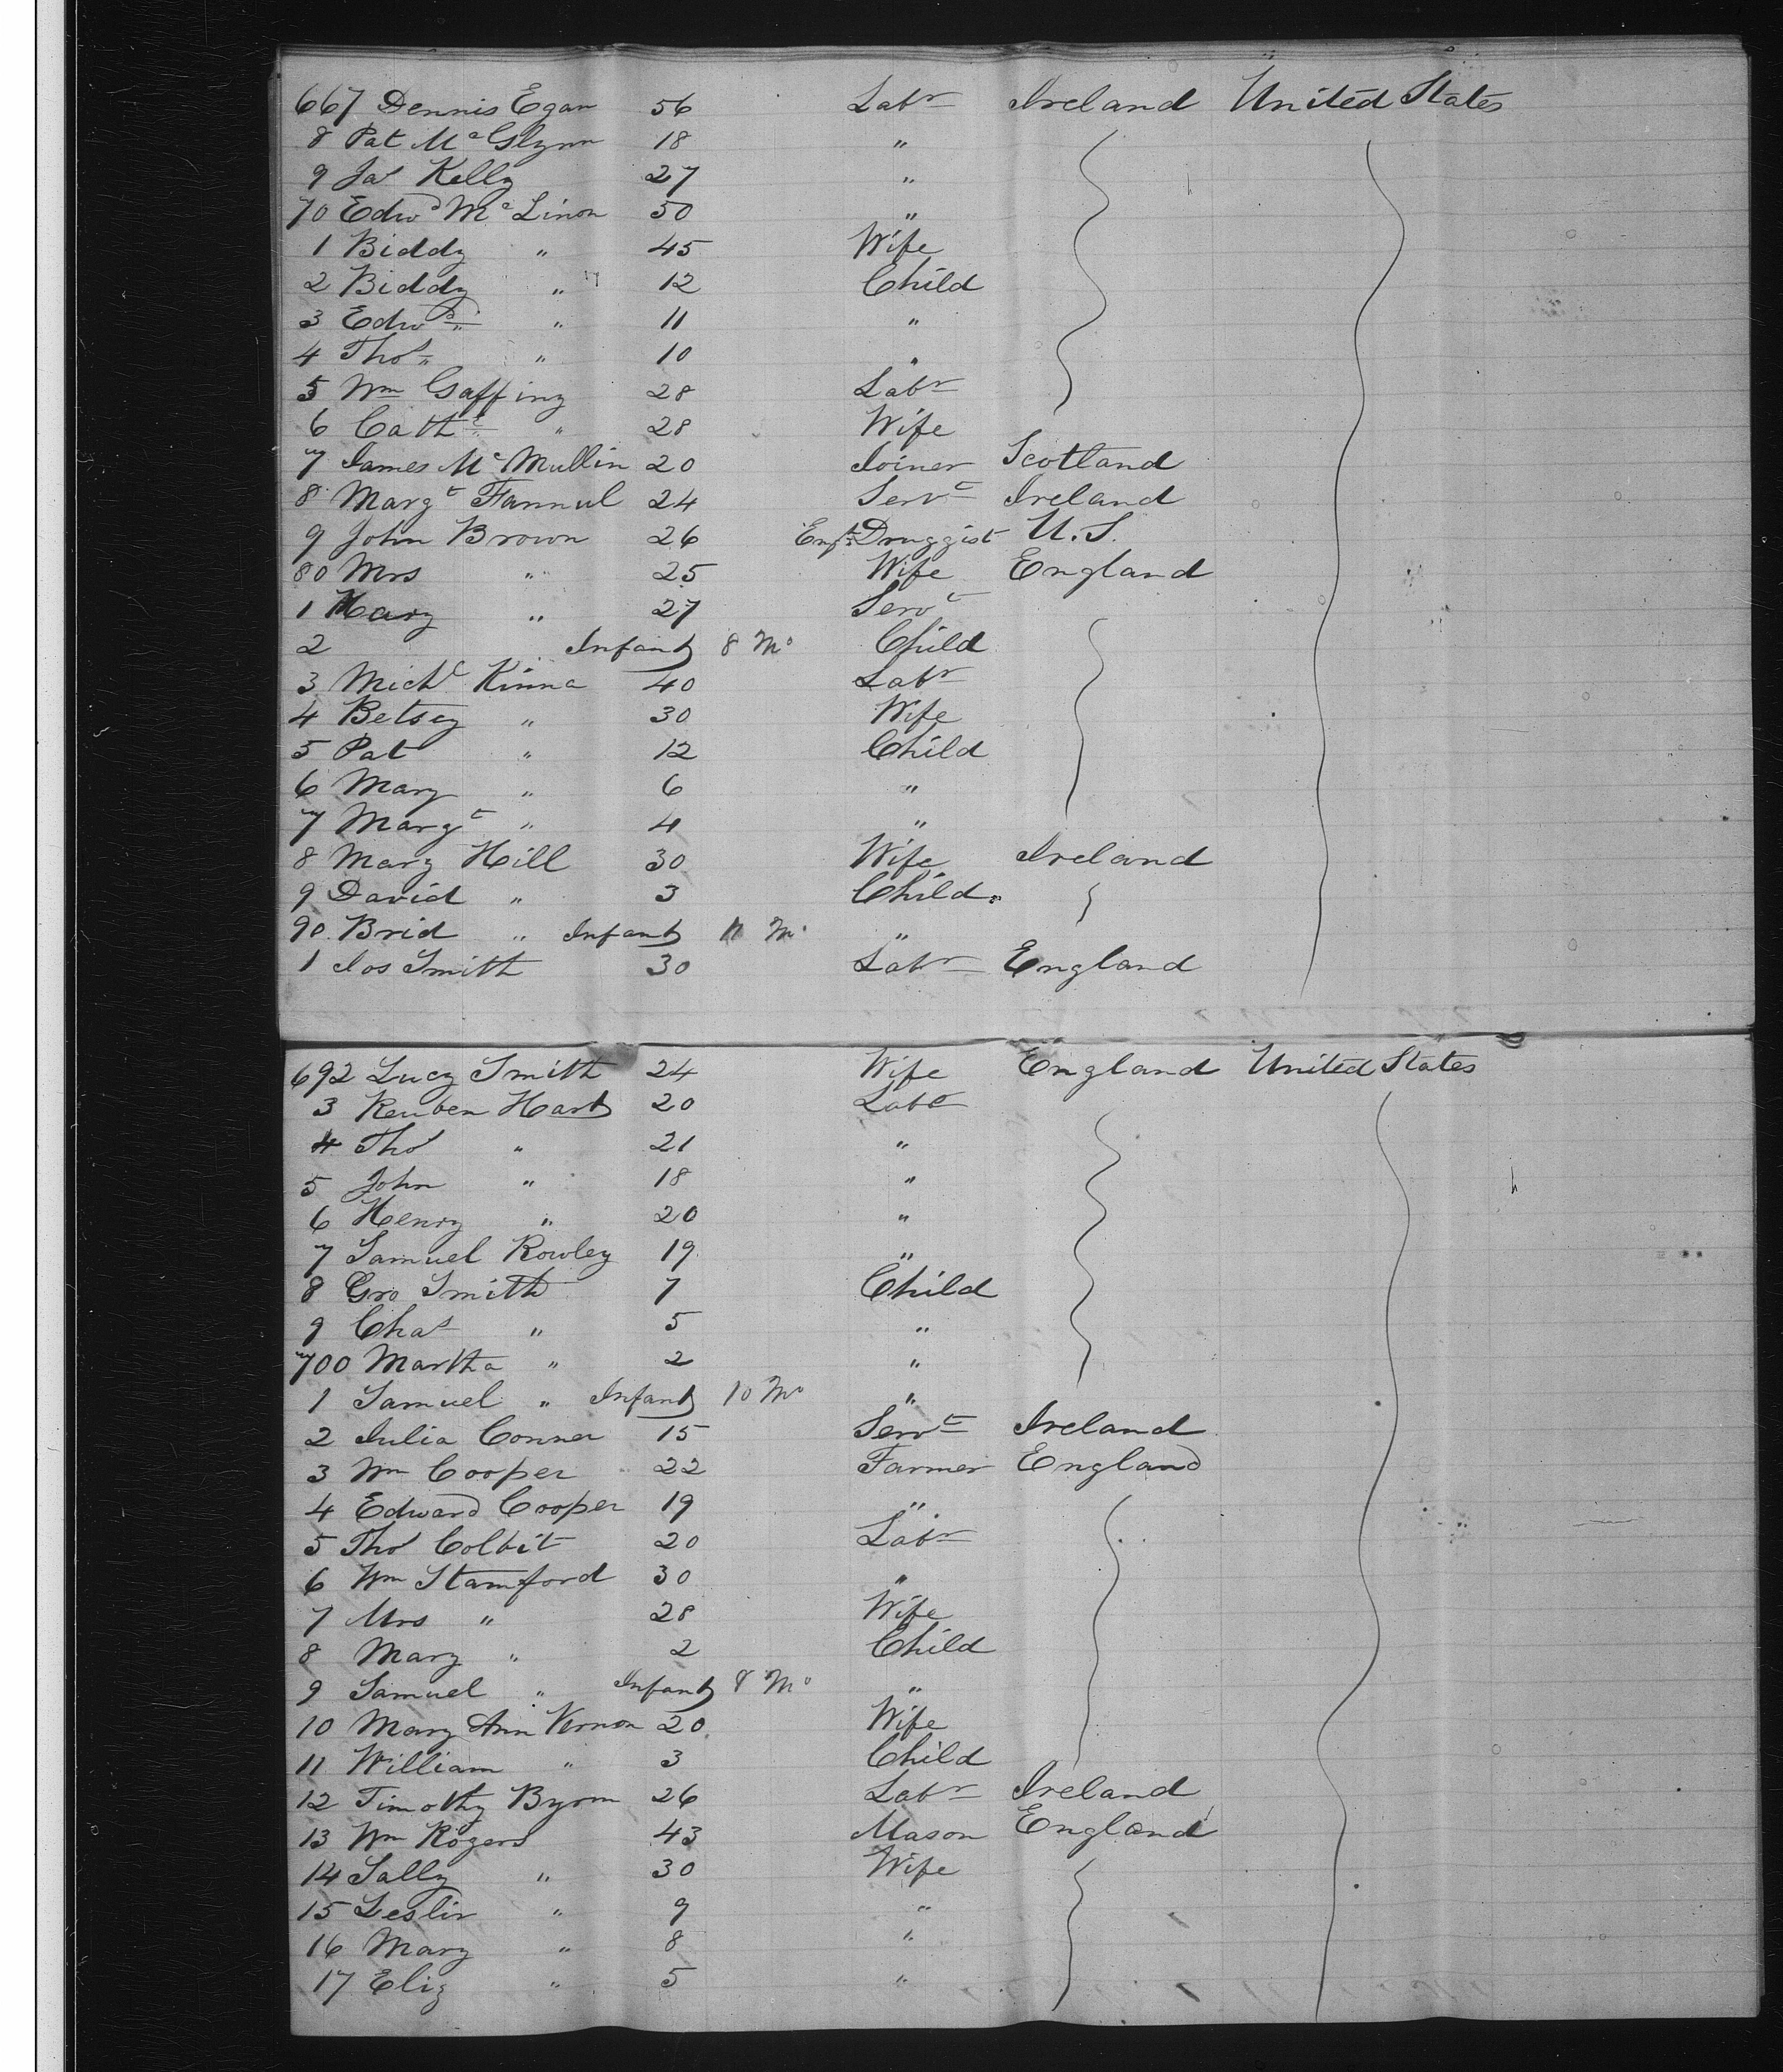 667 Dennis Egan 56 Labr Ireland United States
8 Pat McGlynn 18 "
9 Jas Kelly 27 "
70 Edwd McLinon 50 "
1 Biddy " 45 Wife
2 Biddy " 12 Child
3 Edwd " 11 "
4 Thos " 10 "
5 Wm Gaffing 28 Labr
6 Cathe " 28 Wife
7 James McMullin 20 Joiner Scotland
8 Margt Fannul 24 Servt Ireland
9 John Brown 26 Druggist U.S.
80 Mrs " 25 Wife England
1 Mary " 27 Servt
2 Infant 8 Mo Child
3 Michl Kinna 40 Labr
4 Betsey " 30 Wife
5 Pat " 12 Child
6 Mary " 6 "
7 Margt " 4 "
8 Mary Hill 30 Wife Ireland
9 David " 3 Child
90 Brid " Infant 11 Mo "
1 Jos Smith 30 Labr England
692 Lucy Smith 24 Wife England United States
3 Reuben Hart 20 Labr
4 Thos " 21 "
5 John " 18 "
6 Henry " 20 "
7 Samuel Rowley 19 "
8 Geo Smith 7 Child
9 Chas " 5 "
700 Martha " 2 "
1 Samuel " Infant 10 Mo "
2 Julia Conner 15 Servt Ireland
3 Wm Cooper 22 Farmer England
4 Edward Cooper 19 "
5 Thos Colbit 20 Labr
6 Wm Stamford 30 "
7 Mrs " 28 Wife
8 Mary " 2 Child
9 Samuel " Infant 8 Mo "
10 Mary Ann Vernon 20 Wife
11 William " 3 Child
12 Timothy Byrn 26 Labr Ireland
13 Wm Rogers 43 Mason England
14 Sally " 30 Wife
15 Leslir " 9 "
16 Mary " 8 "
17 Eliz " 5 "